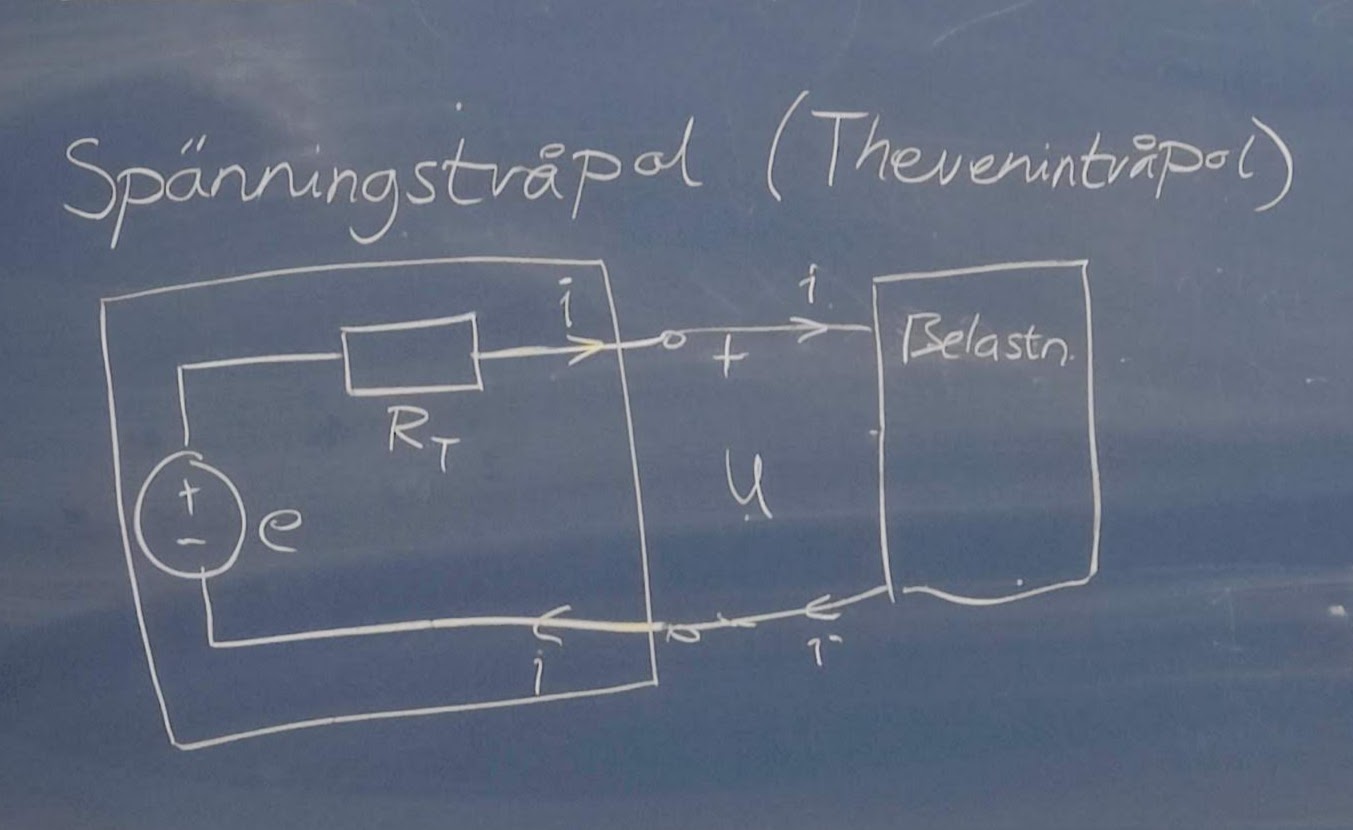 Spänningstvåpol (Thevenintvåpol)
i
i
Belastn.
+
R_T
u
+
-
e
-
i
i